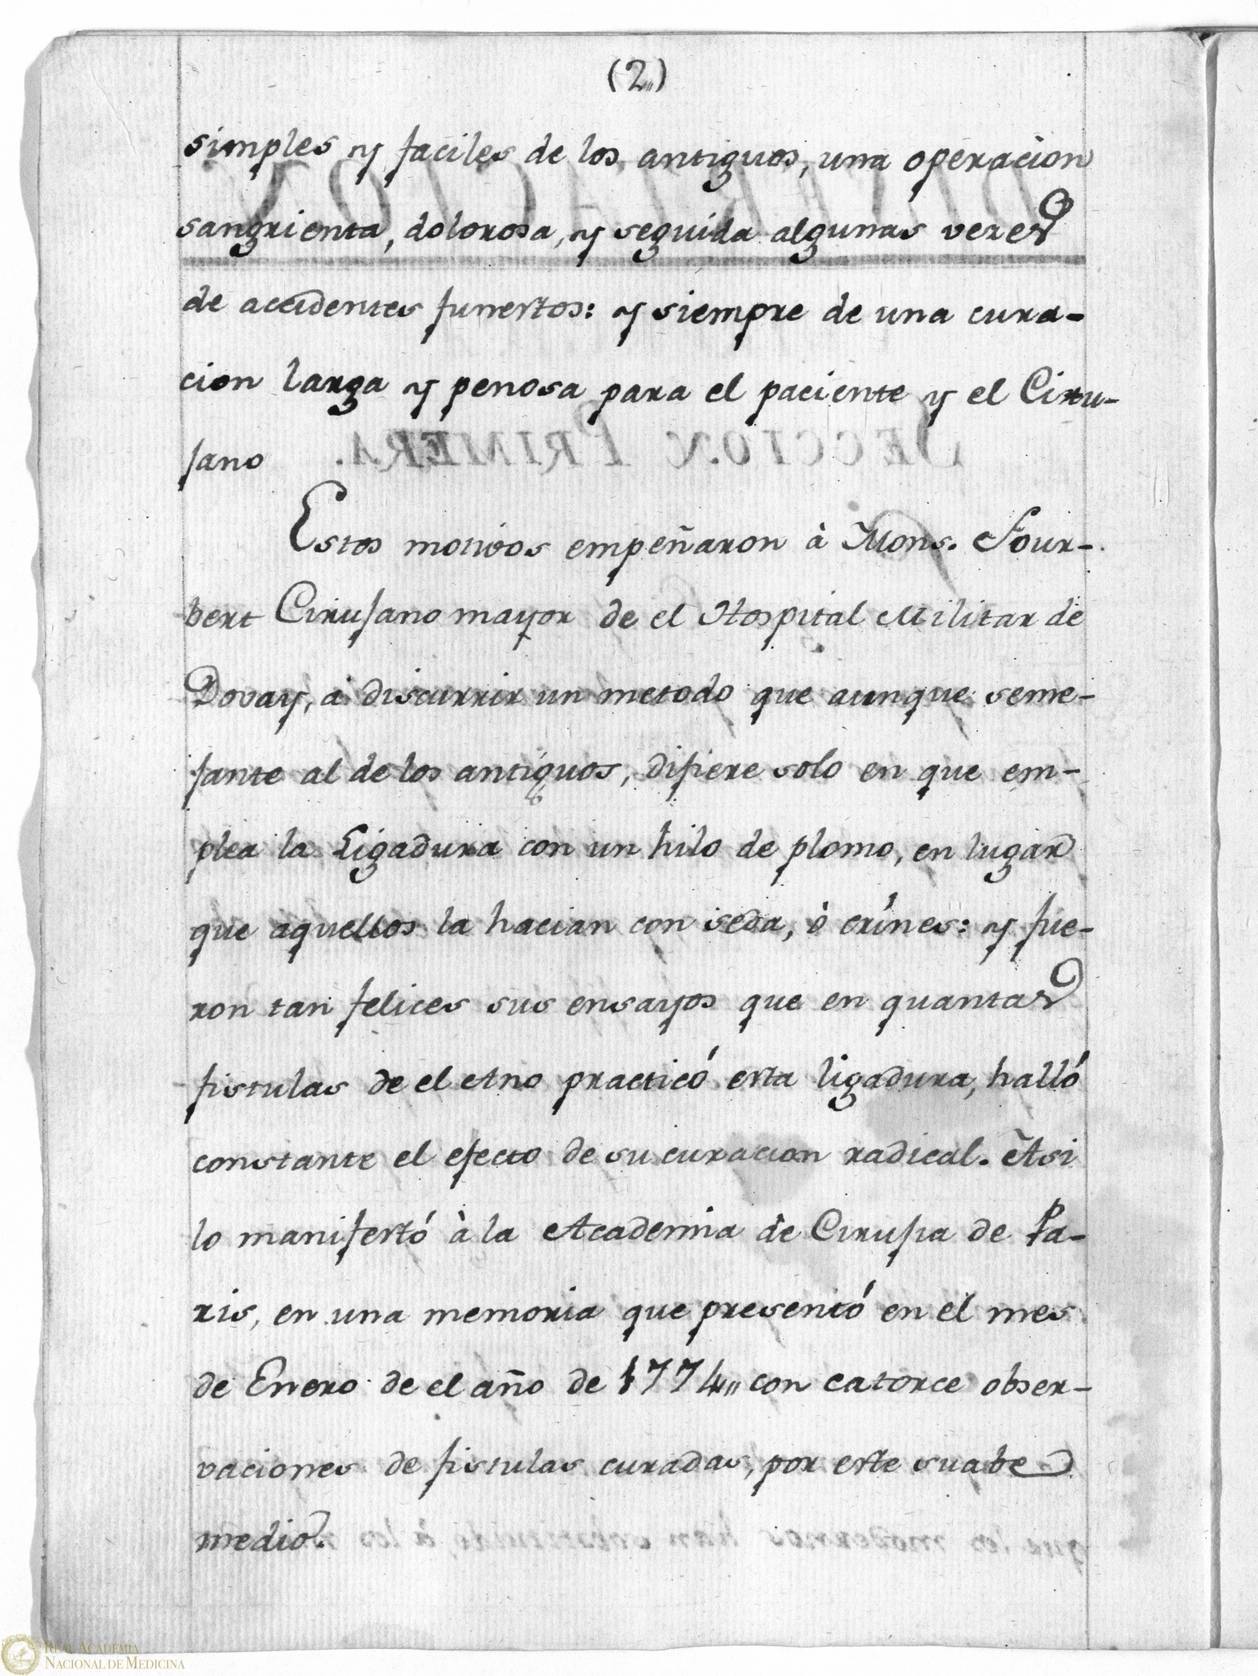 (2,,)
simples y faciles de los antiguos, una operacion
sangrienta, dolorosa, y seguida algunas veces
de accidentes funestos: y siempre de una cura-
cion larga y penosa para el paciente y el Ciru-
jano
Estos motivos empeñaron à Mons. Four-
bert Cirujano mayor de el Hospital Militar de
Dovay, à discurrir un metodo que aunque seme-
jante al de los antiguos, difiere solo en que em-
plea la Ligadura con un hilo de plomo, en lugar
que aquellos la hacian con seda, ò crines: y fue-
ron tan felices sus ensayos que en quantas
fistulas de el Ano practicó esta ligadura, halló
constante el efecto de su curacion radical. Asi
lo manifestó à la Academia de Cirujia de Pa-
ris, en una memoria que presentó en el mes
de Enero de el año de 1774,, con catorce obser-
vaciones de fistulas curadas, por este suabe
medio.
REAL ACADEMIA
NACIONAL DE MEDICINA